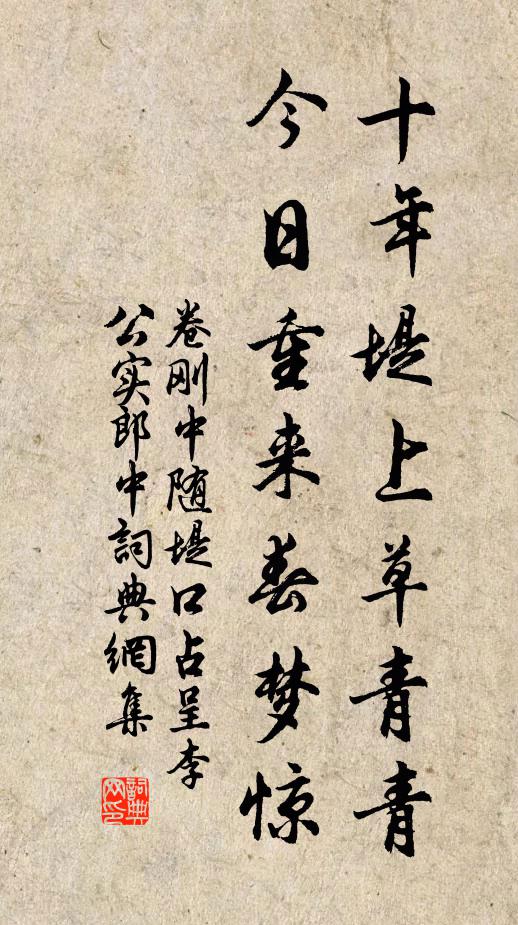 十年堤上草青青
今日重来春梦惊
卷刚中随堤口占呈李
公实郎中詞典網集
詞典
网印